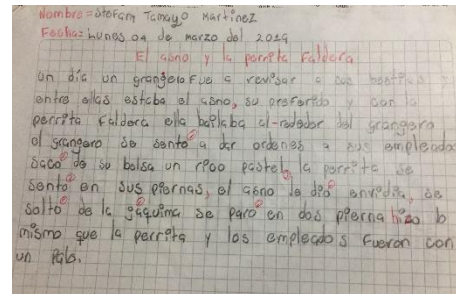 Nombre = Stefani Tamayo Martinez
Fecha = Lunes 04 de marzo del 2019
El asno y la perrita Faldera
un día un grangero fue a revisar a sus bestias
entre ellas estaba el asno, su preferido y con la
perrita faldera ella bailaba al-rededor del grangero
el grangero se sento a dar ordenes a sus empleados
saco de su bolsa un rico pastel, la perrita se
sento en sus piernas, el asno le dio envidia, se
solto de la jáquima se paro en dos pierna hizo lo
mismo que la perrita y los empleados fueron con
un palo.